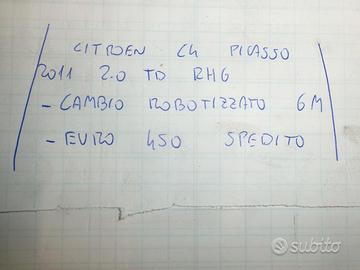 CITROEN C4 PICASSO
2011 2.0 TD RHG
- CAMBIO ROBOTIZZATO 6M
- EURO 450 SPEDITO
subito